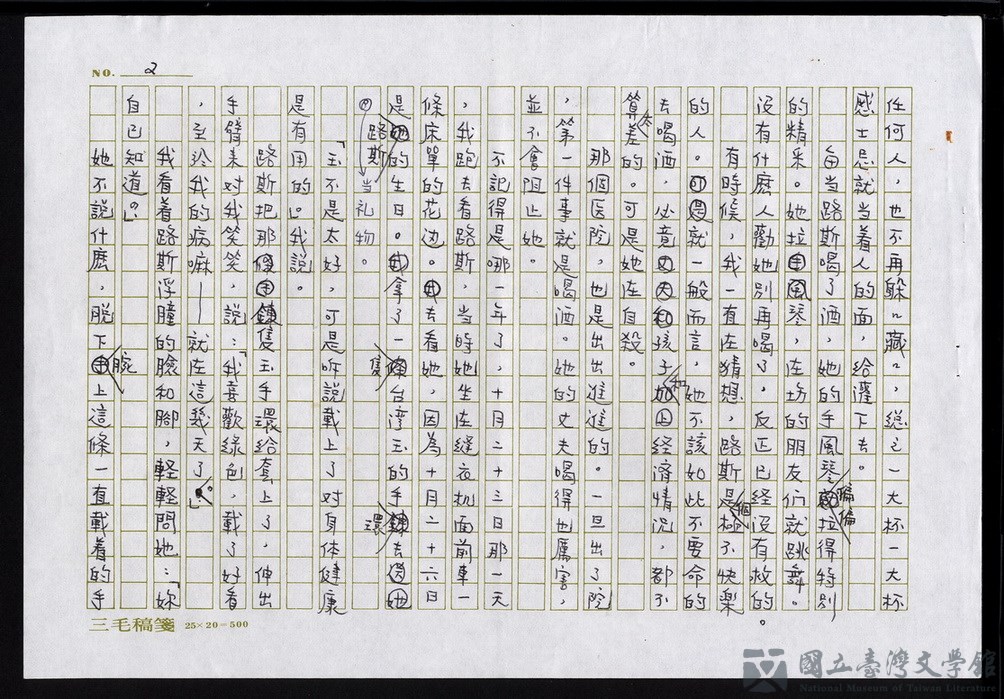 NO. 2
任何人，也不再躲躲藏藏，總之一大杯一大杯
感士忌就当着人的面，給灌下去。
每当路斯喝了酒，她的手風琴偏偏拉得特別
的精采。她拉手風琴，在坊的朋友们就跳舞。
沒有什麼人勸她別再喝了，反正已經沒有救的。
有時候，我一直在猜想，路斯是個極不快樂
的人。可是就一般而言，她不該如此不要命的
去喝酒，必竟丈夫和孩子和經濟情況，都不
算太差的。可是她在自殺。
那個医院，也是出出進進的。一旦出了院
，第一件事就是喝酒。她的丈夫喝得也厲害，
並不會阻止她。
不記得是哪一年了，十月二十三日那一天
，我跑去看路斯，当時她坐在縫衣机面前車一
條床單的花边。我去看她，因為十月二十六日
是路斯的生日。我拿了一隻台湾玉的手環去送她
当礼物。
「玉不是太好，可是听說載上了对身体健康
是有用的。」我說。
路斯把那隻玉手環給套上了，伸出
手臂來对我笑笑，說：「我喜歡綠色，載了好看
，至於我的病嘛——就在這幾天了。」
我看着路斯浮腫的臉和腳，輕輕問她：「妳
自己知道的？」
她不說什麼，脫下腕上這條一直載着的手
三毛稿箋 25×20=500
國立臺灣文學館
National Museum of Taiwan Literature